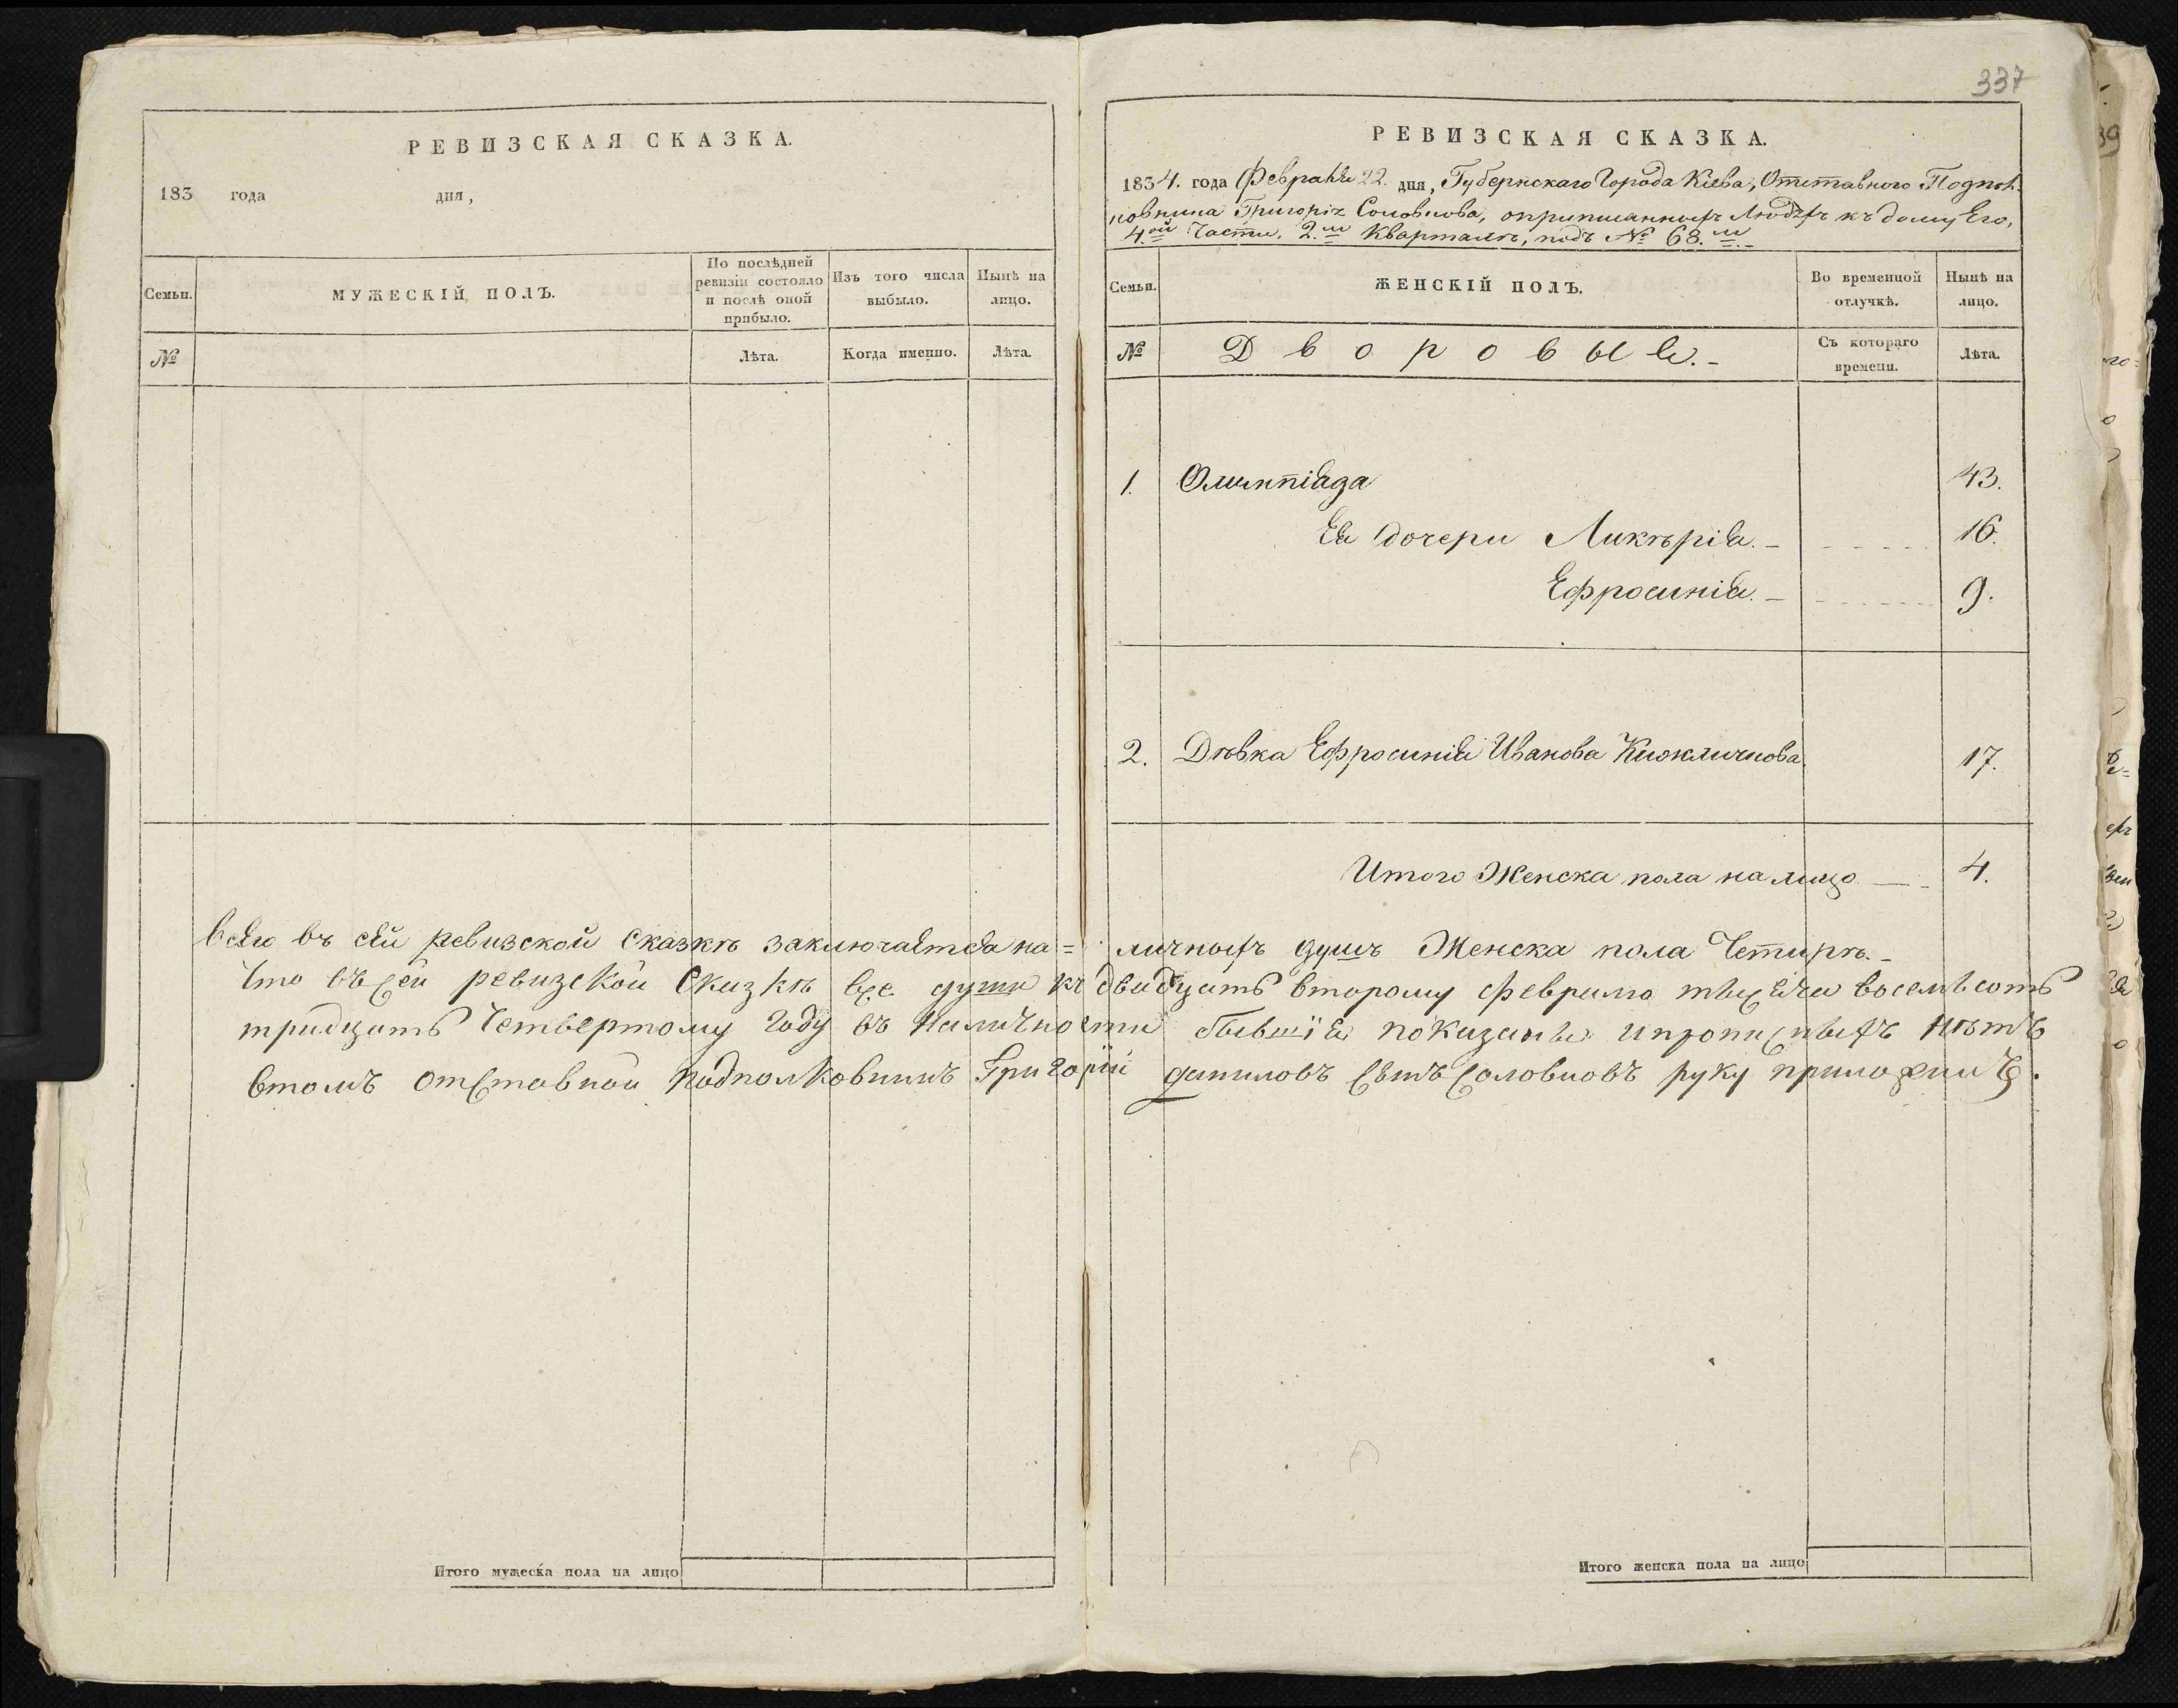 337
РЕВИЗСКАЯ СКАЗКА.
183 года дня,
Семьи.
МУЖЕСКІЙ ПОЛЪ.
По послѣдней ревизіи состояло и послѣ оной прибыло.
Изъ того числа выбыло.
Нынѣ на лицо.
№
Лѣта.
Когда именно.
Лѣта.
РЕВИЗСКАЯ СКАЗКА.
1834. года Февраля 22. дня, Губернскаго Города Кіева, Отставного Подпол-
ковника Григорія Соловкова, оприписанныхъ Людѣхъ къ дому Его,
4.ой Части, 2.м Кварталѣ, подъ № 68.м
Семьи.
ЖЕНСКІЙ ПОЛЪ.
Во временной отлучкѣ.
Нынѣ на лицо.
№
Дворовые.
Съ котораго времени.
Лѣта.
1. Олимпіада 43.
Ея дочери Ликѣрія. 16.
Ефросинія. 9.
2. Дѣвка Ефросинія Иванова 17.
Итого Женска пола на лицо 4.
Всего въ сей ревизской сказкѣ заключается на= личныхъ душъ Женска пола Четирѣ.
Что въ сей ревизской Сказкѣ все души къ двадцать второму февраля тысяча восемьсотъ
тридцать Четвертому Году въ Наличности бывшія показаны и прописныхъ нѣтъ
втомъ отставной подполковникъ Григорій даниловъ сынъ Соловковъ руку приложилъ.
Итого мужеска пола на лицо
Итого женска пола на лицо